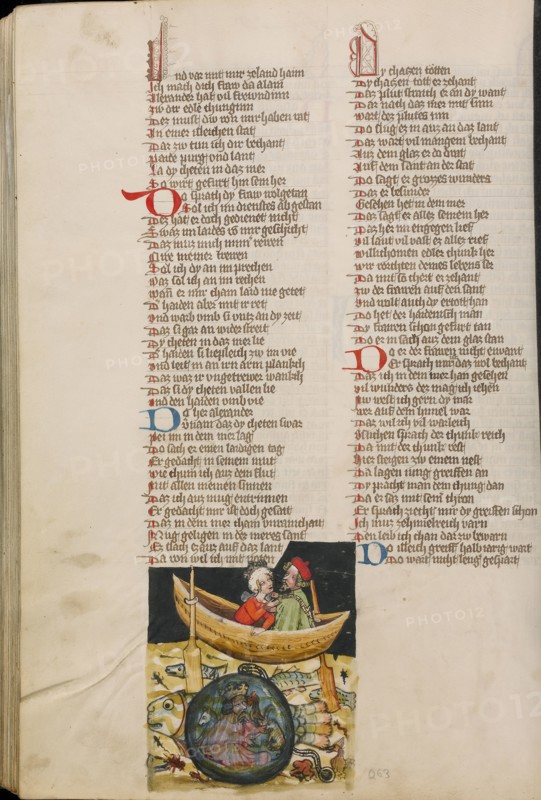 Und var mit mir ze land haim
Ich mach dich fraw da alain
Alexander hat vil frewndinn
zw dir edle chunginn
Der must dw von mir haben nit
In einer isleichen stat
Daz zw tun ich dir bechant
Paide purg vnd lant
La dy cheten in daz mer
So wirt gefurt hin sem her
Do sprach dy fraw wolgetan
Sol ich im dienstes ab gestan
Der hat er doch gedienet nicht
Swaz im laides von mir geschicht
Daz muz mich immer rewen
Owe meiner trewen
Sol ich dy an im prechen
Waz sol ich an im rechen
Wan er mir cham laid nie getet
Der haiden aber mit ir ret
Und warb vmb si vntz an dy zeit
Daz si gar an widerstreit
Dy cheten in daz mer lie
Der haiden si liepleich zw im vie
Und leit in an irn arm planch
Daz waz ir vngetrewer wanch
Daz si dy cheten vallen lie
Und den haiden vmb vie
Do her alexander
Vernam daz dy cheten swar
Pei im in dem mer lag
Do sach er einen laidigen tag
Er gedacht in seinem mut
Wie chum ich auz dem flut
Mit allen meinen sinnen
Daz ich auz mug entrinnen
Er gedacht mir ist doch gesait
Daz in dem mer cham vnrainchait
Mug geligen in der meres sant
Er slach ez auz auf daz lant
Da von wil ich mit töten
Dy chatzen töten
Dy chatzen tott er zehant
Daz plut sprauch er an dy want
Daz nach daz mer mit sinn
wart des plutes inn
Do slug ez in auz an daz lant
Daz wart vil mangem bechant
Auz dem glaz er do drat
Auf dem lant an der stat
Do sagt er grozzes wunders
Daz er besunder
Gesehen het in dem mer
Daz sagt er alles seinem her
Daz her im engegen lief
Vil laut vil vast ez alles rief
Willichomen edler chunk her
wir vorchten deines lebens ser
Da mit so chert er zehant
zw der frawen auf den sant
Und wolt auch dy ertott han
Do het der haidenisch man
Dy frawen schon gefurt tan
Do er in sach auz dem glas stan
Do er der frawen nicht envant
Er sprach mir daz wol bechant
Daz ich in dem mer han gesehen
Vil wunders des mag ich iehen
Nu west ich gern dy mar
Wer auf dem himel war
Daz wil ich vil warleich
Isleichen sprach der chunk reich
Da mit der chunk rest
Hiez steigen zw einem nest
Da lagen iung greiffen an
Dy pracht man dem chung dan
Da er saz mit sem thron
Er sprach zeucht mir dy greiffen schon
Ich muz gehimelreich varn
Den leib ich chan daz zw bewarn
Do isleich greiff halbiarig wart
Do wart nicht leng gespart
263
PHOTO12